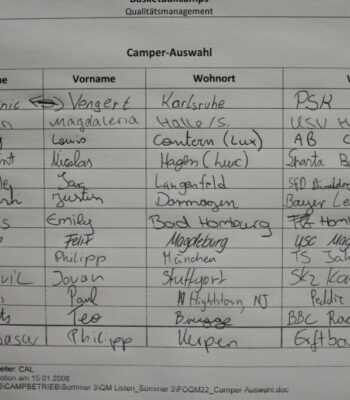 Basketballcamps
Qualitätsmanagement
Camper-Auswahl
Vorname Wohnort
Vengert Karlsruhe PSK
Magdalena Halle/S. USV H
Louis Contern (Lux) AB C
Nicolas Hagen (Lux) Sparta B
Jan Langenfeld SFD Düsseldor
Justin Dormagen Bayer Le
Emily Bad Homburg Homb
Felix Magdeburg USC Mag
Philipp München TS Jah
Jovan Stuttgart SKZ Ka
Paul Hightstown, NJ Peddie
Teo Brugge BBC
Philipp Eupen Giftba
eiter: CAL
ion am 15.01.2008
\CAMPBETRIEB\Sommer 3\QM Listen_Sommer 3\FOQM22_Camper-Auswahl.doc